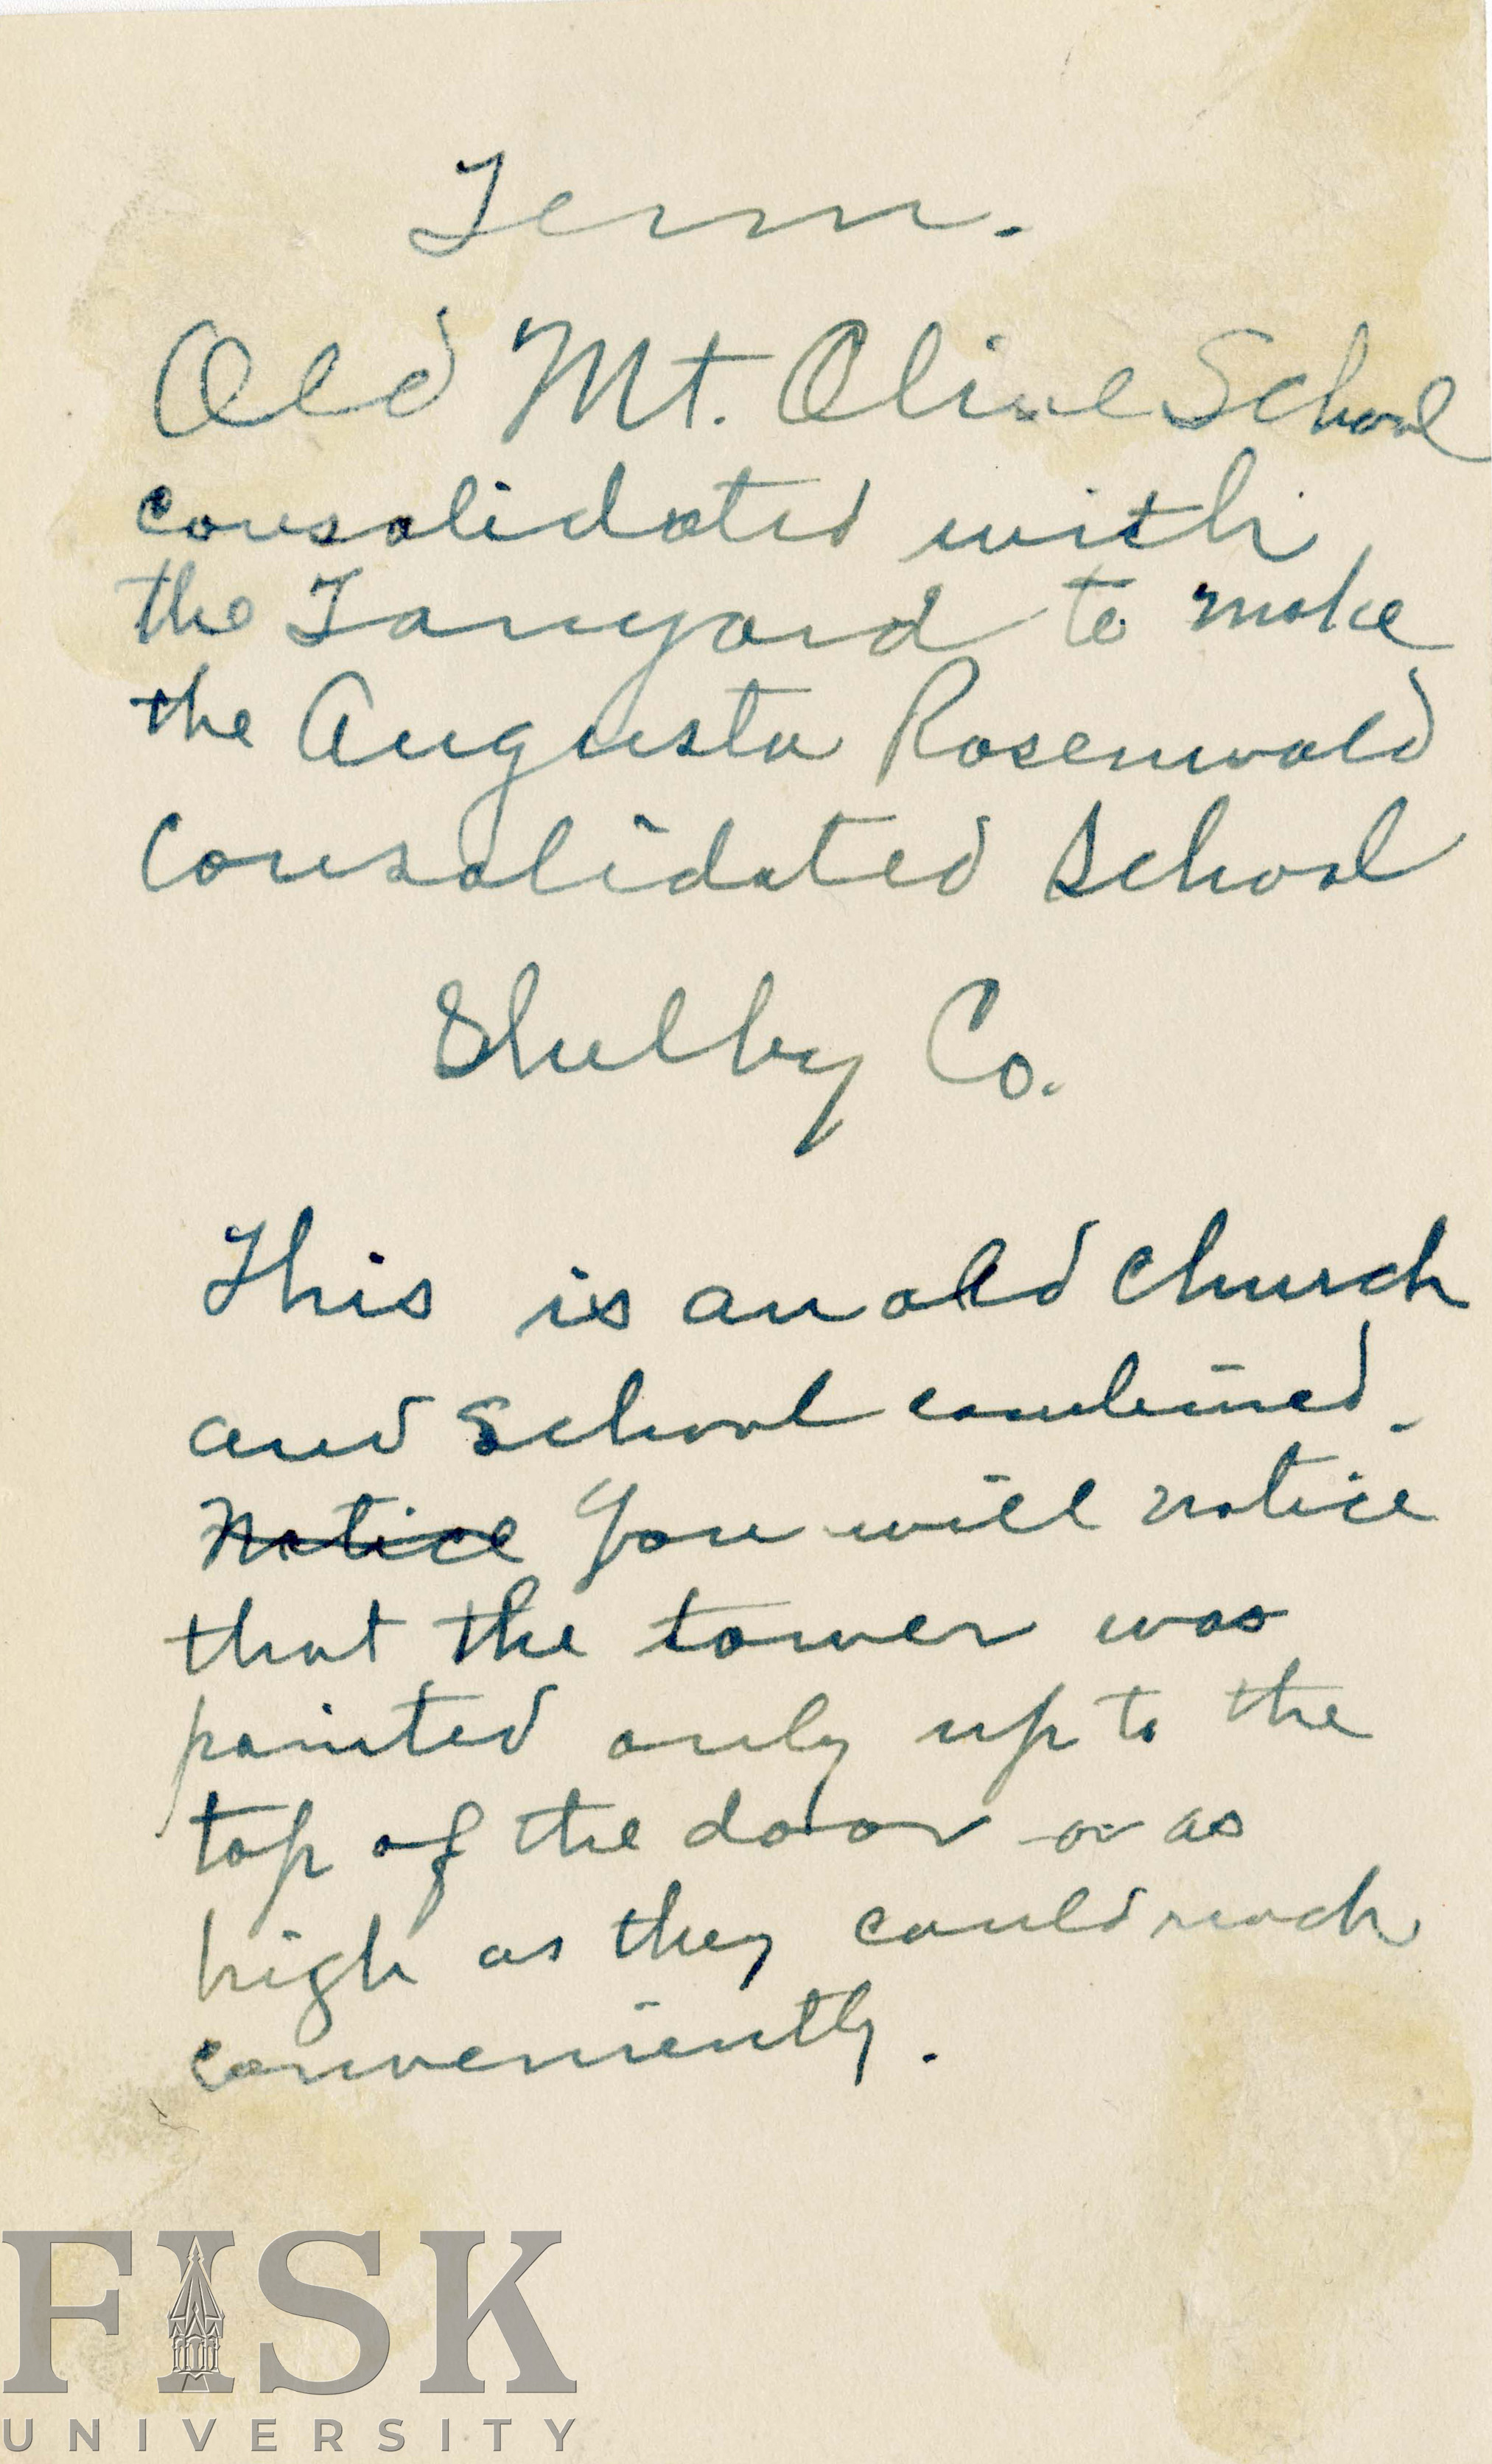 Tenn.
Old Mt. Olive School
consolidated with
the Tanyard to make
the Augusta Rosenwald
Consolidated School
Shelby Co.
This is an old church
and school combined.
Notice You will notice
that the tower was
painted only up to the
top of the door or as
high as they could reach
conveniently.
FISK
UNIVERSITY